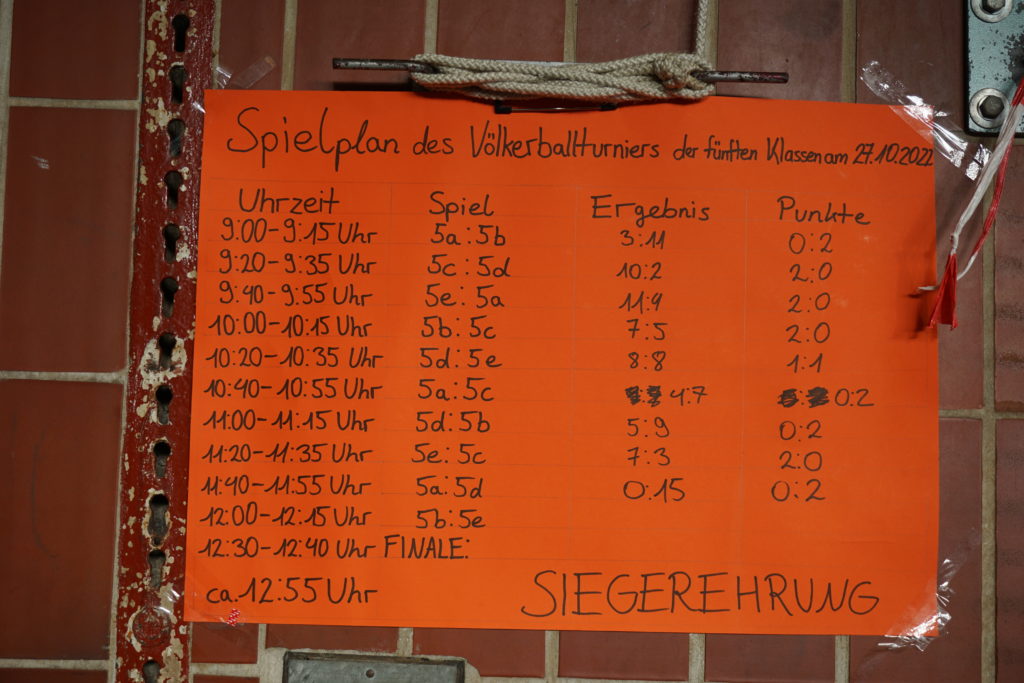 Spielplan des Völkerballturniers der fünften Klassen am 27.10.2022
Uhrzeit Spiel Ergebnis Punkte
9:00-9:15 Uhr 5a:5b 3:11 0:2
9:20-9:35 Uhr 5c:5d 10:2 2:0
9:40-9:55 Uhr 5e:5a 11:9 2:0
10:00-10:15 Uhr 5b:5c 7:5 2:0
10:20-10:35 Uhr 5d:5e 8:8 1:1
10:40-10:55 Uhr 5a:5c 4:7 0:2
11:00-11:15 Uhr 5d:5b 5:9 0:2
11:20-11:35 Uhr 5e:5c 7:3 2:0
11:40-11:55 Uhr 5a:5d 0:15 0:2
12:00-12:15 Uhr 5b:5e
12:30-12:40 Uhr FINALE:
ca. 12:55 Uhr SIEGEREHRUNG